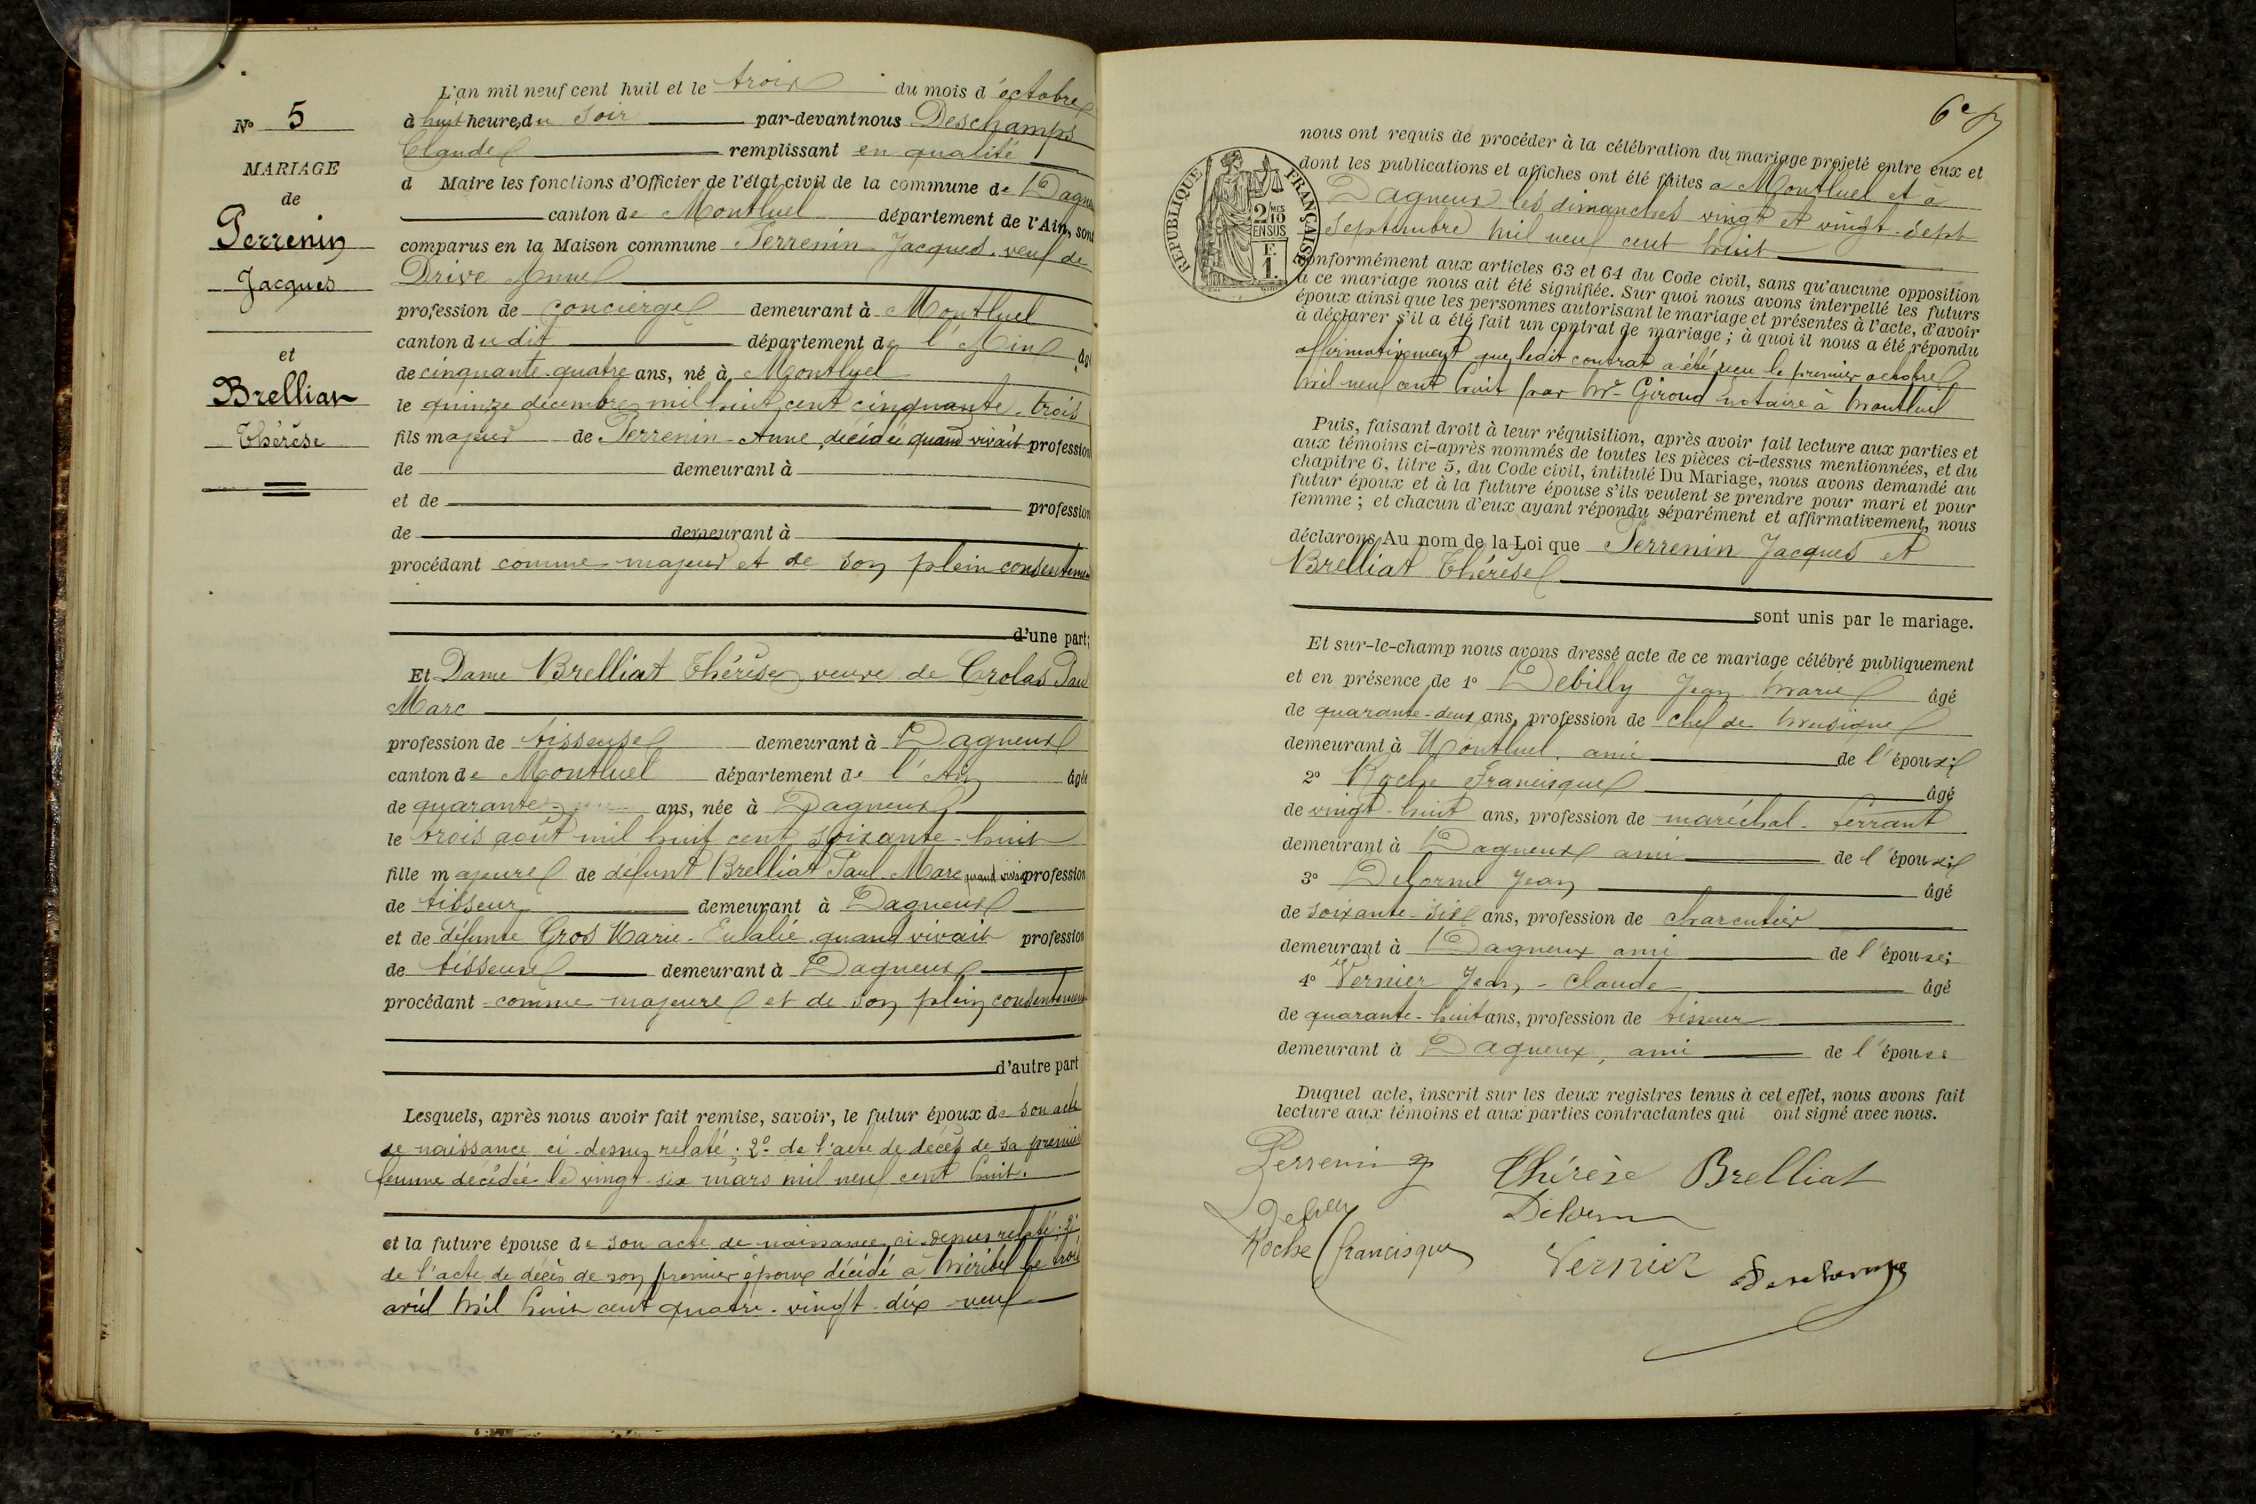 L'an mil neuf cent huit et le trois du mois d'octobre
N° 5
à huit heures du soir par-devant nous Deschamps
Claude remplissant en qualité
MARIAGE
d Maire les fonctions d'Officier de l'état civil de la commune de Dagneux
de
canton de Montluel département de l'Ain, sont
Perrenin
comparus en la Maison commune Perrenin Jacques, veuf de
Jacques
Drive Anne
profession de concierge demeurant à Montluel
canton dudit département de l'Ain âgé
et
de cinquante-quatre ans, né à Montluel
Brelliat
le quinze décembre mil huit cent cinquante-trois
Thérèse
fils majeur de Perrenin Anne, décédée quand vivait profession
de demeurant à
et de profession
de demeurant à
procédant comme majeur et de son plein consentement
d'une part;
Et Dame Brelliat Thérèse veuve de Crolas Paul
Marc
profession de tisseuse demeurant à Dagneux
canton de Montluel département de l'Ain âgée
de quarante ans, née à Dagneux
le trois août mil huit cent soixante-huit
fille majeure de défunt Brelliat Paul Marc quand vivait profession
de tisseur demeurant à Dagneux
et de défunte Gros Marie-Eulalie quand vivait profession
de tisseuse demeurant à Dagneux
procédant comme majeure et de son plein consentement
d'autre part
Lesquels, après nous avoir fait remise, savoir, le futur époux de son acte
de naissance ci-dessus relaté; 2° de l'acte de décès de sa première
femme décédée le vingt-six mars mil neuf cent huit.
et la future épouse de son acte de naissance ci-dessus relaté; 2°
de l'acte de décès de son premier époux décédé à Miribel le trois
avril mil huit cent quatre-vingt-dix-neuf
6e
nous ont requis de procéder à la célébration du mariage projeté entre eux et
dont les publications et affiches ont été faites à Montluel et à
Dagneux les dimanches vingt et vingt-sept
septembre mil neuf cent huit
RÉPUBLIQUE FRANÇAISE
2/10 MES
EN SUS
F.
1.
conformément aux articles 63 et 64 du Code civil, sans qu'aucune opposition
à ce mariage nous ait été signifiée. Sur quoi nous avons interpellé les futurs
époux ainsi que les personnes autorisant le mariage et présentes à l'acte, d'avoir
à déclarer s'il a été fait un contrat de mariage; à quoi il nous a été répondu
affirmativement que ledit contrat a été reçu le premier octobre
mil neuf cent huit par Me Giroud notaire à Montluel
Puis, faisant droit à leur réquisition, après avoir fait lecture aux parties et
aux témoins ci-après nommés de toutes les pièces ci-dessus mentionnées, et du
chapitre 6, titre 5, du Code civil, intitulé Du Mariage, nous avons demandé au
futur époux et à la future épouse s'ils veulent se prendre pour mari et pour
femme; et chacun d'eux ayant répondu séparément et affirmativement, nous
déclarons Au nom de la Loi que Perrenin Jacques et
Brelliat Thérèse
sont unis par le mariage.
Et sur-le-champ nous avons dressé acte de ce mariage célébré publiquement
et en présence de 1° Debilly Jean Marie âgé
de quarante-deux ans, profession de chef de musique
demeurant à Montluel, ami de l'époux;
2° Roche Francisque âgé
de vingt-huit ans, profession de maréchal-ferrant
demeurant à Dagneux ami de l'époux;
3° Delorme Jean âgé
de soixante-six ans, profession de charcutier
demeurant à Dagneux ami de l'épouse;
4° Vernier Jean-Claude âgé
de quarante-huit ans, profession de tisseur
demeurant à Dagneux, ami de l'épouse
Duquel acte, inscrit sur les deux registres tenus à cet effet, nous avons fait
lecture aux témoins et aux parties contractantes qui ont signé avec nous.
Perrenin Thérèse Brelliat
Debilly Delorme
Roche Francisque Vernier Deschamps